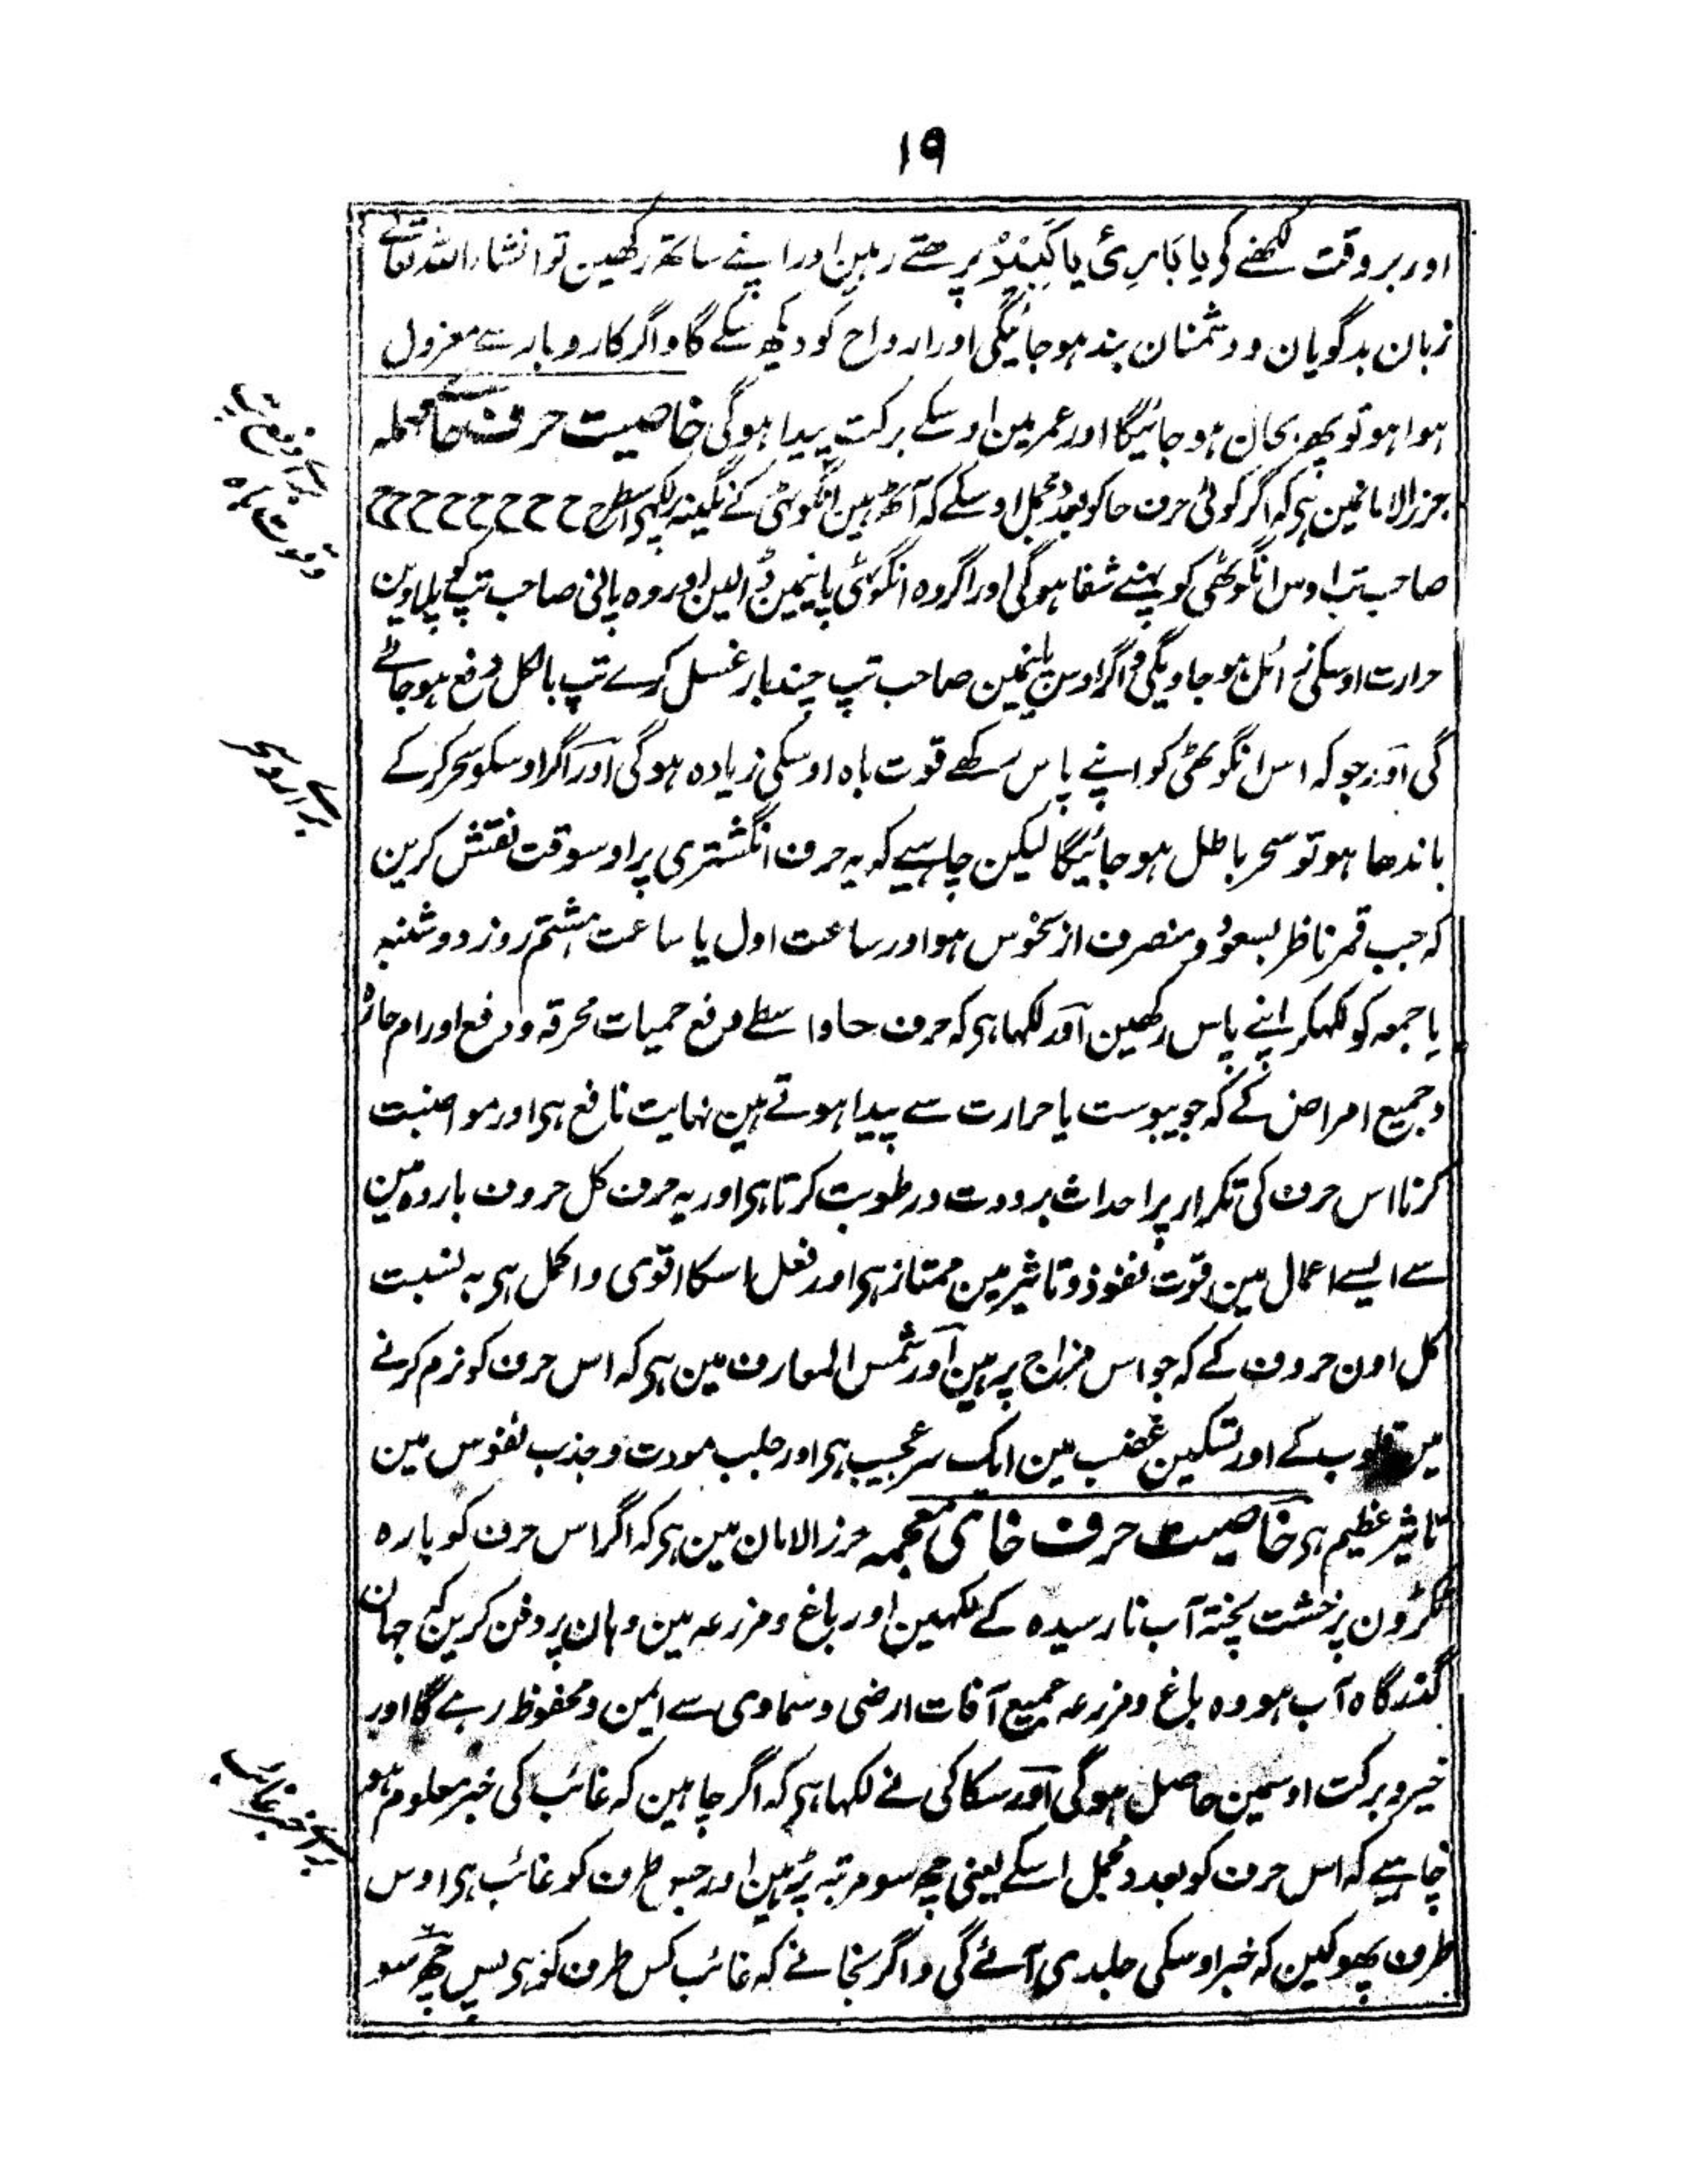 ۱۹
اور بر وقت لکھنے کو یا بَارِئُ یا کَبِیْرُ پڑھتے رہین اور اپنے ساتھ رکھین تو انشاراللہ تعالے
زبان بدگویان و دشمنان بند ہو جائیگی اور ارواح کو دیکھ سکے گا و اگر کاروبار سے معزول
ہوا ہو تو پھر بحال ہو جائیگا اور عمر مین اوسکے برکت پیدا ہوگی خاصیت حرف حائے مہملہ
حرز الامانمین ہی کہ اگر کوئی حرف حا کو بعدد مجمل اوسکے کہ آٹھ ہین انگوٹھی کے نگینہ پر لکھی اسطرح ح ح ح ح ح ح ح ح
صاحب تب اوس انگوٹھی کو پہنے شفا ہوگی اور اگر وہ انگوٹھی پانیمین ڈالین اور وہ پانی صاحب تپ کو پلاوین
حرارت اوسکی زائل ہو جاویگی و اگر اوس پانیمین صاحب تپ چند بار غسل کرے تپ بالکل دفع ہو جائے
گی اور جو کہ اس انگوٹھی کو اپنے پاس رکھے قوت باہ اوسکی زیادہ ہوگی اور اگر اوسکو سحر کرکے
باندھا ہو تو سحر باطل ہو جائیگا لیکن چاہیے کہ یہ حرف انگشتری پر اوسوقت نقش کرین
کہ جب قمر ناظر بسعود و منصرف از نحوس ہو اور ساعت اول یا ساعت ہشتم روز دوشنبہ
یا جمعہ کو لکھکر اپنے پاس رکھین اور لکھا ہی کہ حرف حا واسطے دفع حمیات محرقہ و دفع اورام حارہ
و جمیع امراض کے کہ جو یبوست یا حرارت سے پیدا ہوتے ہین نہایت نافع ہی اور مواضبت
کرنا اس حرف کی تکرار پر احداث برودت و رطوبت کرتا ہی اور یہ حرف کل حروف باردہ مین
سے ایسے اعمال مین قوت نفوذ و تاثیر مین ممتاز ہی اور فعل اسکا اقوی و اکمل ہی بہ نسبت
کل اون حروف کے کہ جو اس مزاج پر ہین اور شمس المعارف مین ہی کہ اس حرف کو نرم کرنے
مین قلوب کے اور تسکین غضب مین ایک سر عجیب ہی اور جلب مودت و جذب نفوس مین
تاثیر عظیم ہی خاصیت حرف خای معجمہ حرز الامان مین ہی کہ اگر اس حرف کو بارہ
ٹکڑون پر خشت پختہ آب نارسیدہ کے لکھین اور باغ و مزرعہ مین وہان پر دفن کرین کہ جہان
گذرگاہ آب ہو وہ باغ و مزرعہ جمیع آفات ارضی و سماوی سے ایمن و محفوظ رہے گا اور
خیر و برکت اوسمین حاصل ہوگی اور سکاکی نے لکھا ہی کہ اگر چاہین کہ غائب کی خبر معلوم ہو
چاہیے کہ اس حرف کو بعدد مجمل اسکے یعنی چھ سو مرتبہ پڑھین اور جس طرف کو غائب ہی اوس
طرف پھوکین کہ خبر اوسکی جلدی آئے گی و اگر نجانے کہ غائب کس طرف کو ہی پس چھ سو
برائے دفع تپ
و قوت باہ
برائے رد سحر
برائے خبر غائب